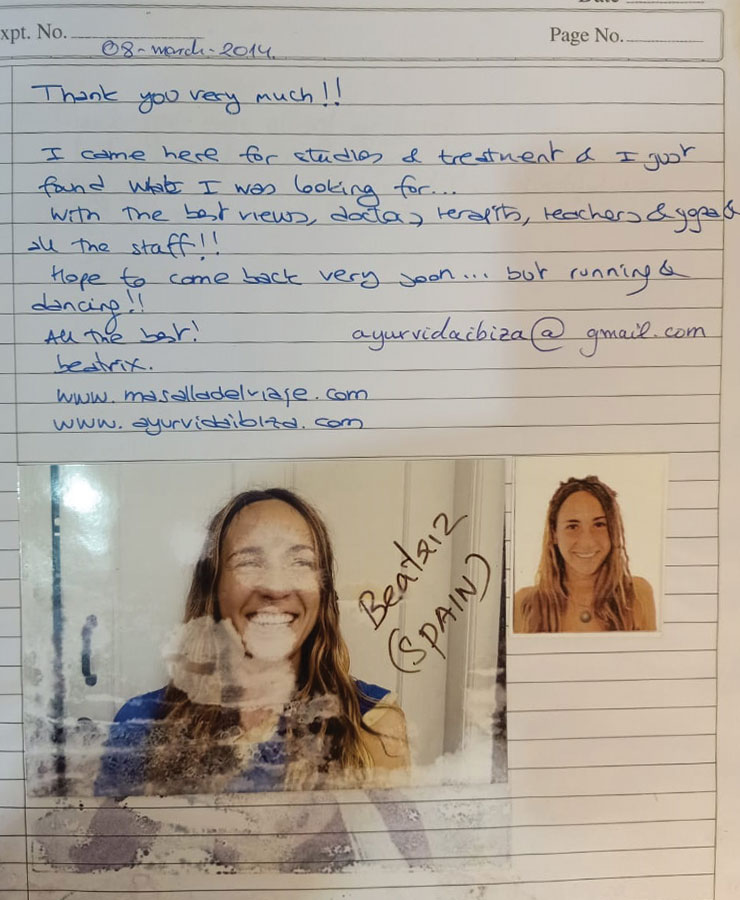 Expt. No.
08-march-2014.
Page No.
Thank you very much!!
I came here for studies & treatment & I just
found what I was looking for...
With the best views, doctors, terapits, teachers & yoga &
all the staff!!
Hope to come back very soon... but running &
dancing!!
All the best!
ayurvidaibiza@gmail.com
beatrix.
www.masalladelviaje.com
www.ayurvidaibiza.com
Beatriz
(SPAIN)